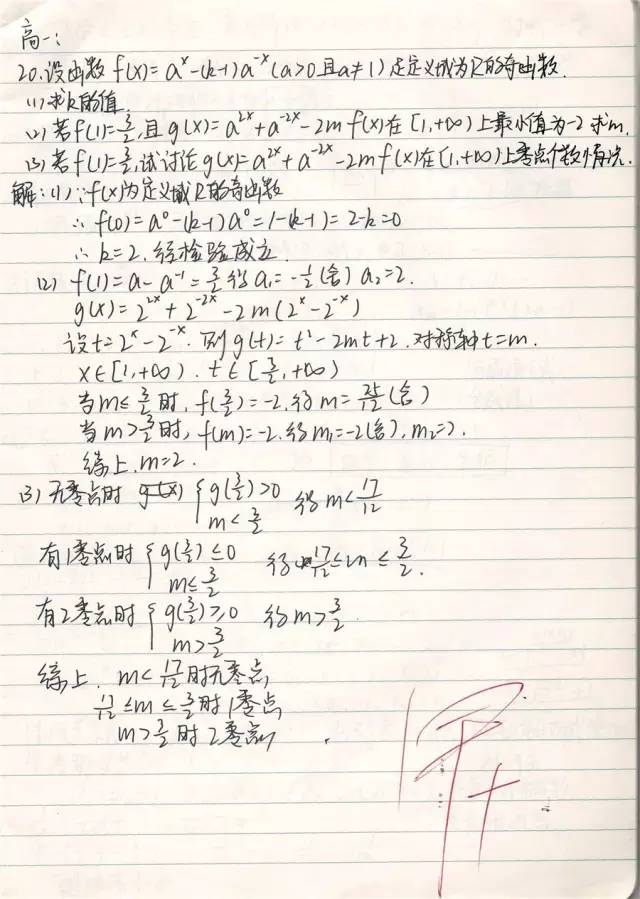 高一:
20.设函数 f(x)= a^x-(k-1)a^-x (a>0且a≠1)是定义域为R的奇函数.
(1)求k的值.
(2)若f(1)=3/2,且g(x)=a^2x+a^-2x-2mf(x)在[1,+∞)上最小值为-2求m.
(3)若f(1)=3/2,试讨论g(x)=a^2x+a^-2x-2mf(x)在[1,+∞)上零点个数情况.
解:(1)∵f(x)为定义域R的奇函数
∴f(0)=a^0-(k-1)a^0=1-(k-1)=2-k=0
∴k=2.经检验成立.
(2) f(1)=a-a^-1=3/2得a1=-1/2(舍) a2=2.
g(x)=2^2x+2^-2x-2m(2^x-2^-x)
设t=2^x-2^-x.则g(t)=t^2-2mt+2.对称轴t=m.
x∈[1,+∞). t∈[3/2,+∞)
当m≤3/2时,f(3/2)=-2.得m=25/12(舍)
当m>3/2时,f(m)=-2.得m1=-2(舍),m2=2.
综上.m=2.
(3)无零点时 g(x) { g(3/2)>0 得m<17/12
m<3/2
有1零点时 { g(3/2)≤0 得 17/12≤m≤3/2.
m≤3/2
有2零点时 { g(3/2)≥0 得m>3/2.
m>3/2
综上. m<17/12时无零点,
17/12≤m≤3/2时1零点
m>3/2时2零点,